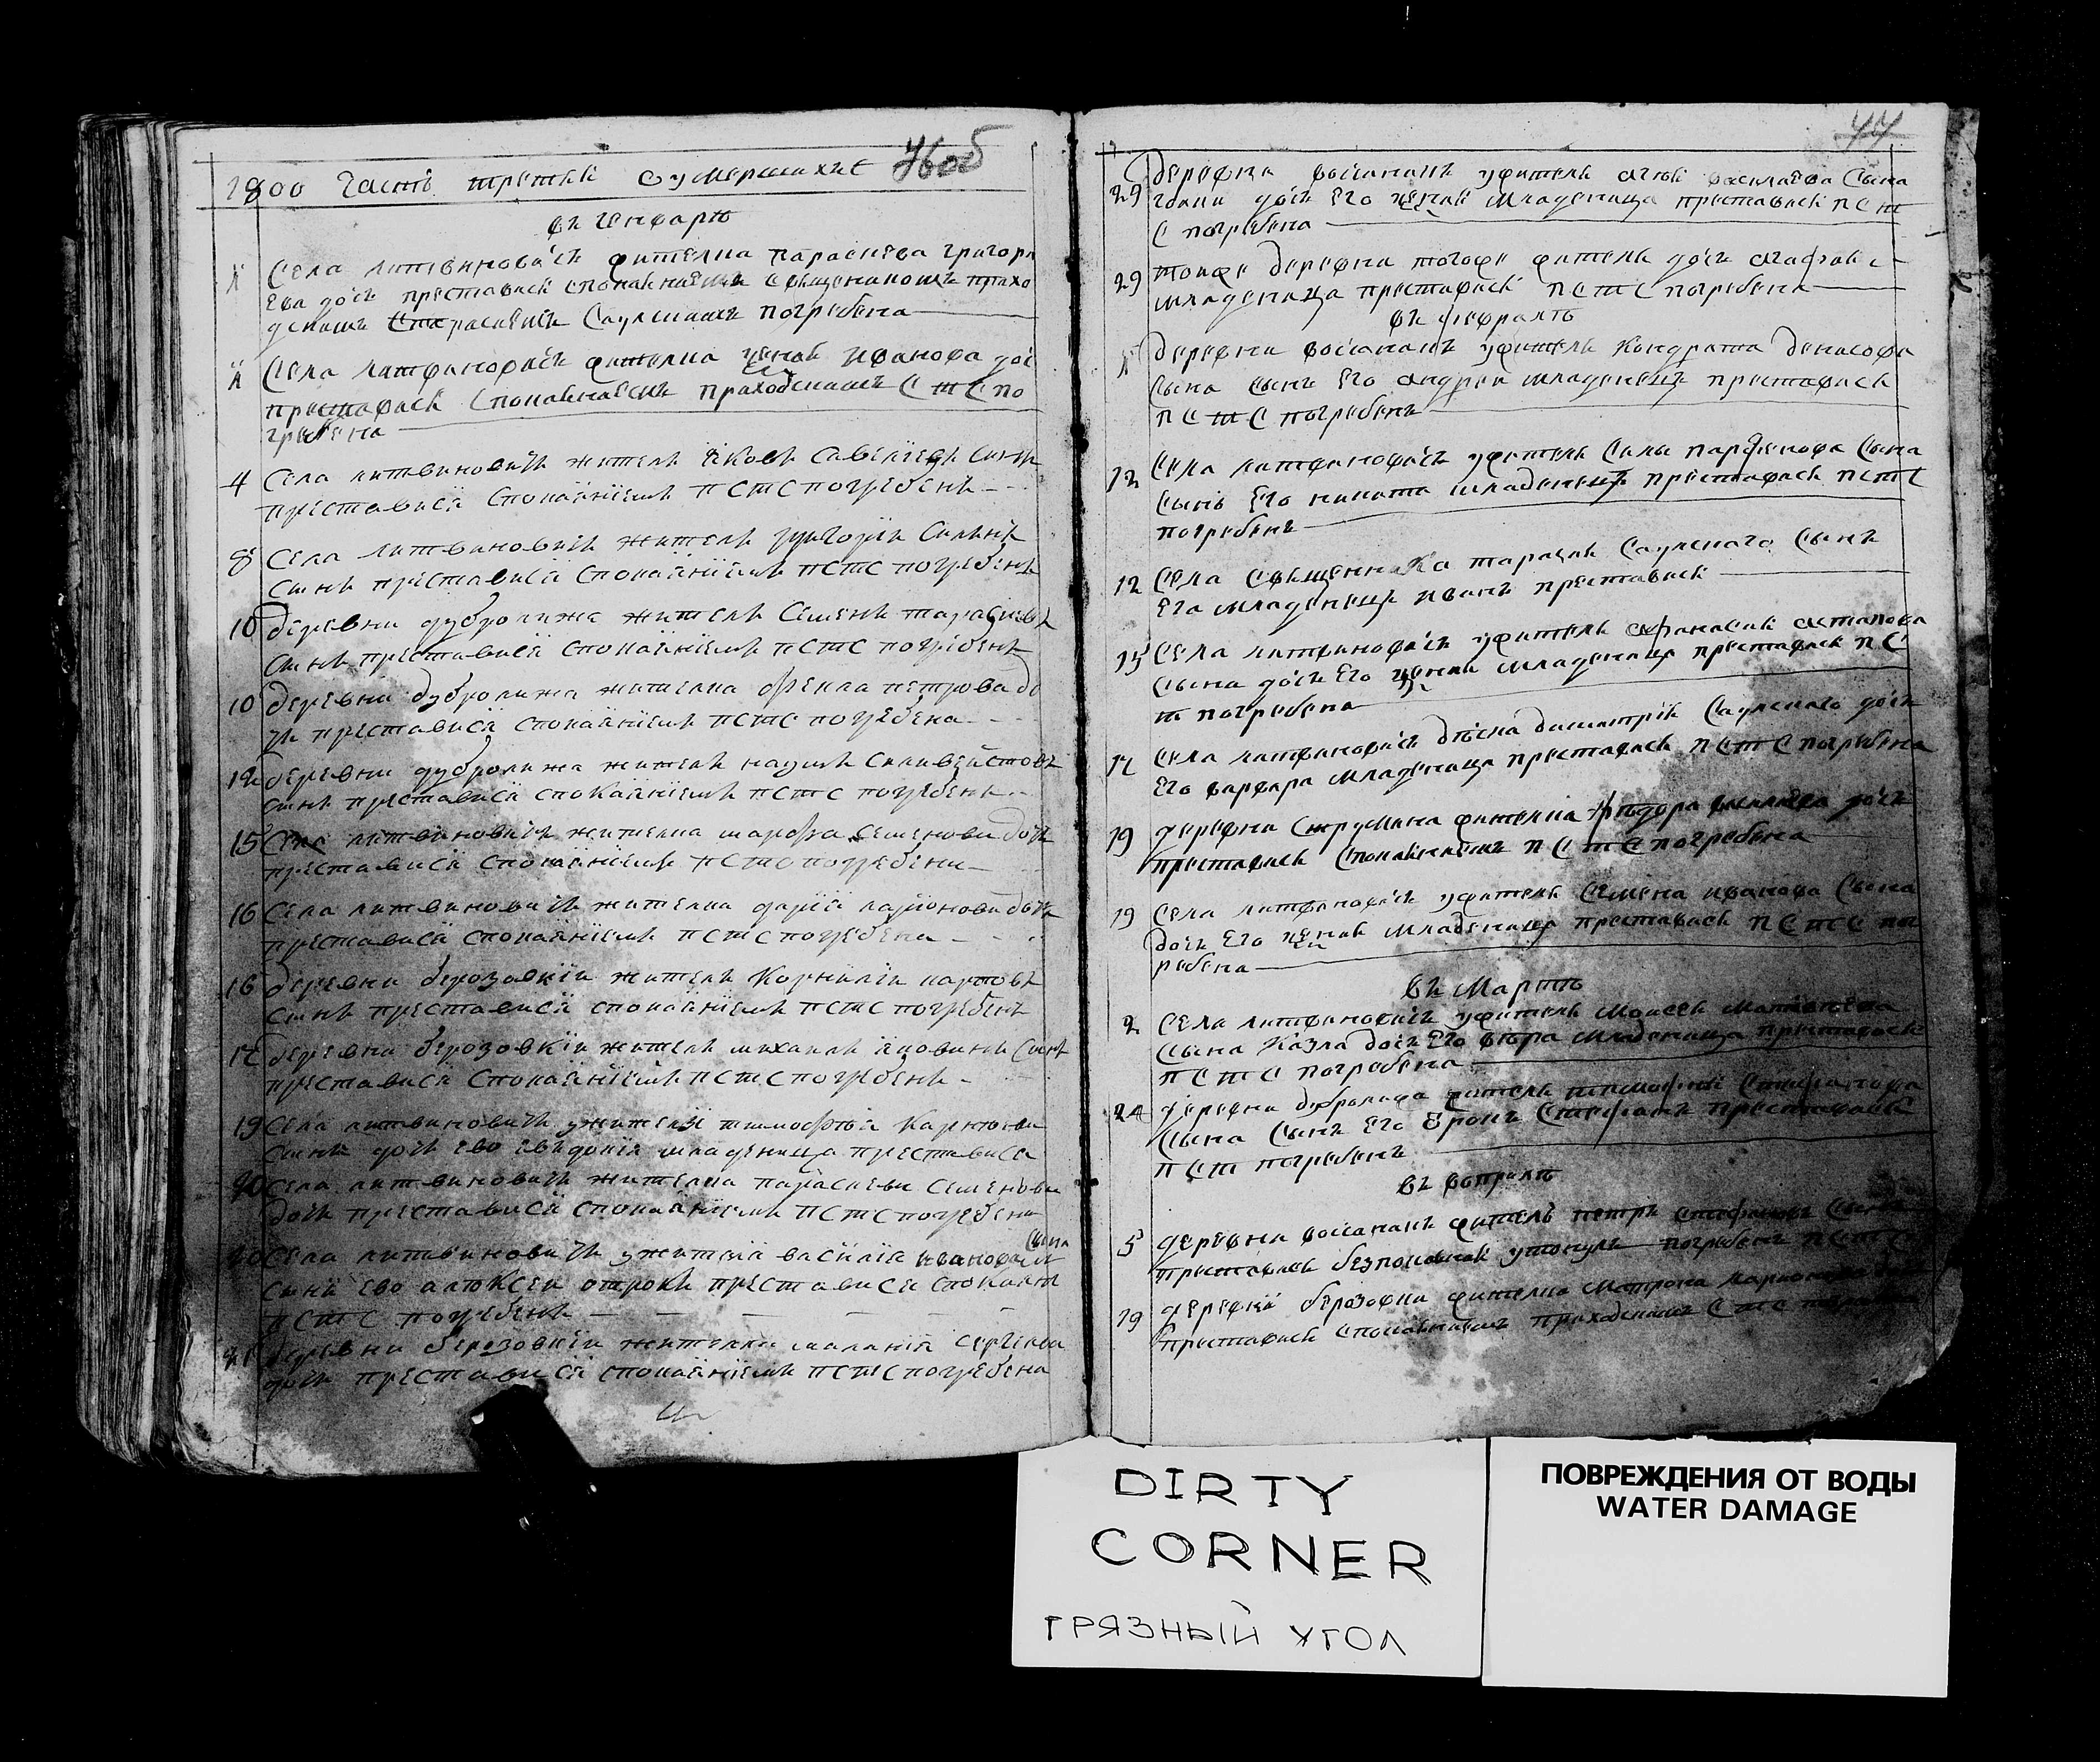 46об
1800 Часть третия о умершихъ
въ генварѣ
1 Села литвиновичъ жителка параскева григори
ева дочь преставися споканиемъ священикомъ прихо
цкимъ тарасиемъ Саулскимъ погребена
1 Села литвиновичъ жителка ксения иванова доч
преставися споканиемъ приходскимъ С т С по
гребена
4 Села литвиновичъ житель яковъ савелиевъ синъ
преставися спокаяниемъ П С т С погребенъ
8 Села литвиновичъ житель григорий силинъ
синъ преставися спокаяниемъ П С т С погребенъ
10 деревни дубролижа житель Семенъ тарасиевъ
синъ преставися спокаяниемъ П С т С погребенъ
10 деревни дубролижа жителка фекла петрова до
чъ преставися спокаяниемъ П С т С погребена
12 деревни дубролижа житель наумъ Силивейстовъ
синъ преставися спокаяниемъ П С т С погребенъ
15 Села литвиновичъ жителка марфа семенова дочъ
преставися спокаяниемъ П С т С погребена
16 Села литвиновичъ жителка дария ларионова дочъ
преставися спокаяниемъ П С т С погребена
16 деревни берозовкии житель Корнилии карповъ
синъ преставися спокаяниемъ П С т С погребенъ
17 деревни берозовкии житель михаилъ яковинъ синъ
преставися спокаяниемъ П С т С погребенъ
19 Села литвиновичъ ужителя тимофѣя Карпова
сина дочъ ево евъдокия младеница преставися
20 Села литвиновичъ жителка параскева Семенова
дочъ преставися спокаяниемъ П С т С погребена
20 Села литвиновичъ ужителя василия иванова сина
синъ ево алѣксеи отрокъ преставися спокаяни
П С т С погребенъ
21 деревни берозовкии жителка мелания сергиева
дочъ преставися спокаяниемъ П С т С погребена
47
29 деревни жителя василиева Сына
дочь Его ксения младеница преставися П С т
С погребена
29 тоиже деревни тогоже жителя дочь агафия
младеница преставися П С т С погребена
въ февралѣ
1 деревни ужителя Кондрата денисова
сына сынъ Его андреи младенецъ преставися
П С т С погребенъ
12 Села литвиновичъ ужителя Силы парфенова Сына
Сынъ Его никита младенецъ преставися П С т С
погребенъ
12 Села Священика тарасия Саулского Сынъ
Его младенецъ иванъ преставися
15 Села литвиновичъ ужителя афанасия астапова
Сына дочь Его ксения младеница преставися П С
т погребена
17 Села литвиновичъ дияка димитрия Саулского дочь
Его варвара младеница преставися П С т С погребена
19 деревни Струмина жителка федора василиева дочь
преставися споканиемъ П С т С погребена
19 Села литвиновичъ ужителя Семена иванова Сына
дочь Его ксения младеница преставися П С т С пог
ребена
въ Мартѣ
2 Села литвиновичъ ужителя Моисея
Сына Казла дочь Его вѣра младеница преставися
П С т С погребена
24 деревни дубролижа жителя тимофея Стефанова
Сына Сынъ Его Стефанъ преставися
П С т погребенъ
въ воприлѣ
5 деревни житель петръ Стефановъ Сынъ
преставися безпокаяния утонулъ погребенъ П С т
19 деревни берозовки жителка Матрона ларионова
преставися споканиемъ приходскимъ С т С
DIRTY
CORNER
ГРЯЗНЫЙ УГОЛ
ПОВРЕЖДЕНИЯ ОТ ВОДЫ
WATER DAMAGE